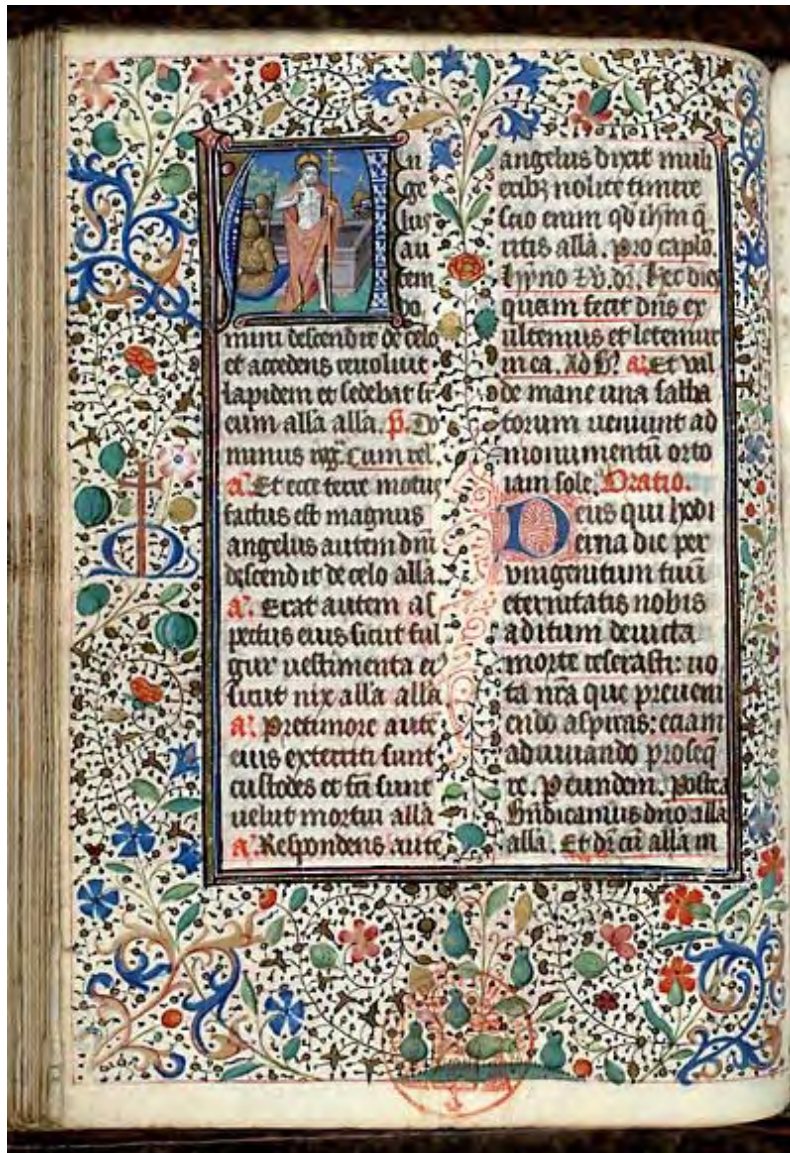 An
ge
lus
au
tem
do
mini descendit de celo
et accedens revolvit
lapidem et sedebat su
eum alla alla. p. Do
minus reg. Cum rel.
a. Et ecce terre motus
factus est magnus
angelus autem dni
descendit de celo alla.
a. Erat autem as
pectus eius sicut ful
gur vestimenta ei
sicut nix alla alla
a. Pre timore aute
eius exterriti sunt
custodes et fci sunt
velut mortui alla
a. Respondens aute
angelus dixit muli
erib nolite timere
scio enim qd ihm q
ritis alla. pro caplo
hyno dr. hec dies
quam fecit dns ex
ultemus et letemur
in ea. Ad a. Et val
de mane una sabba
torum veniunt ad
monumentu orto
iam sole. Oratio.
Deus qui hodi
erna die per
unigenitum tuu
eternitatis nobis
aditum devicta
morte reserasti: vo
ta nra que preveni
endo aspiras: eciam
adiuvando proseq
re. P eundem. Postea
Bndicamus dno alla
alla. Et dr cu alla in